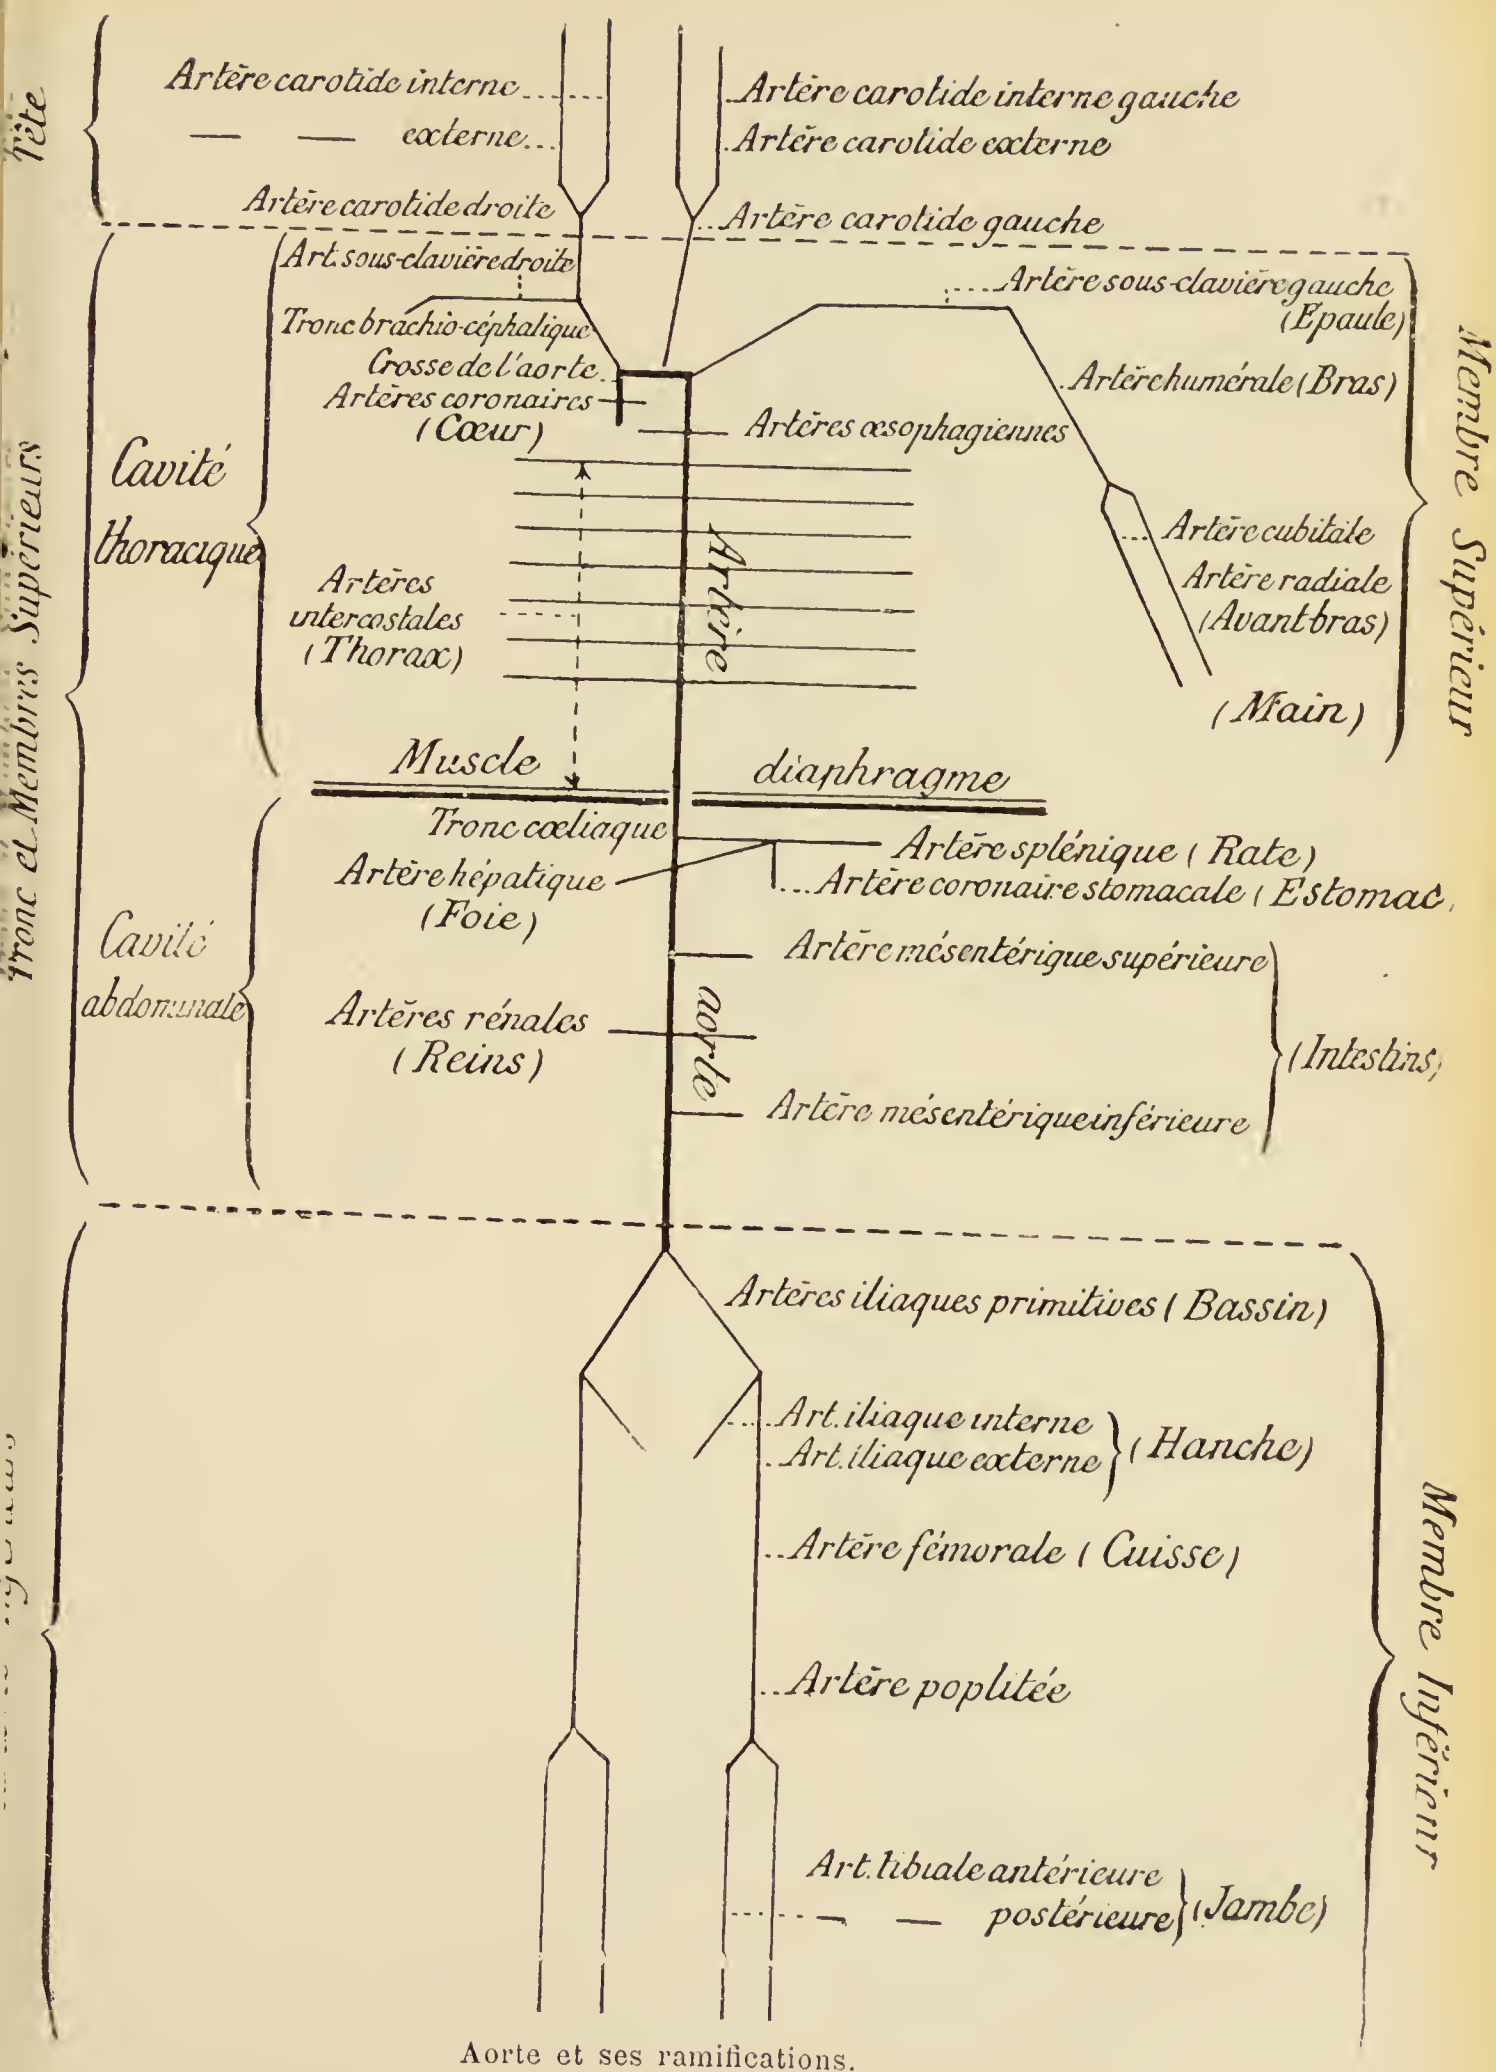 Tête
Artère carotide interne
— — externe
Artère carotide droite
Artère carotide interne gauche
Artère carotide externe
Artère carotide gauche
Tronc et Membres Supérieurs
Cavité
thoracique
Art. sous-clavière droite
Tronc brachio-céphalique
Crosse de l'aorte
Artères coronaires
(Cœur)
Artères œsophagiennes
Artères
intercostales
(Thorax)
Artère
Artère sous-clavière gauche
(Epaule)
Artère humérale (Bras)
Artère cubitale
Artère radiale
(Avant bras)
(Main)
Membre Supérieur
Muscle diaphragme
Cavité
abdominale
Tronc cœliaque
Artère hépatique
(Foie)
Artère splénique (Rate)
Artère coronaire stomacale (Estomac
Artère mésentérique supérieure
Artères rénales
(Reins)
aorte
Artère mésentérique inférieure
(Intestins)
Artères iliaques primitives (Bassin)
Art. iliaque interne
Art. iliaque externe
(Hanche)
Artère fémorale (Cuisse)
Artère poplitée
Art. tibiale antérieure
— — postérieure
(Jambe)
Membre Inférieur
Aorte et ses ramifications.